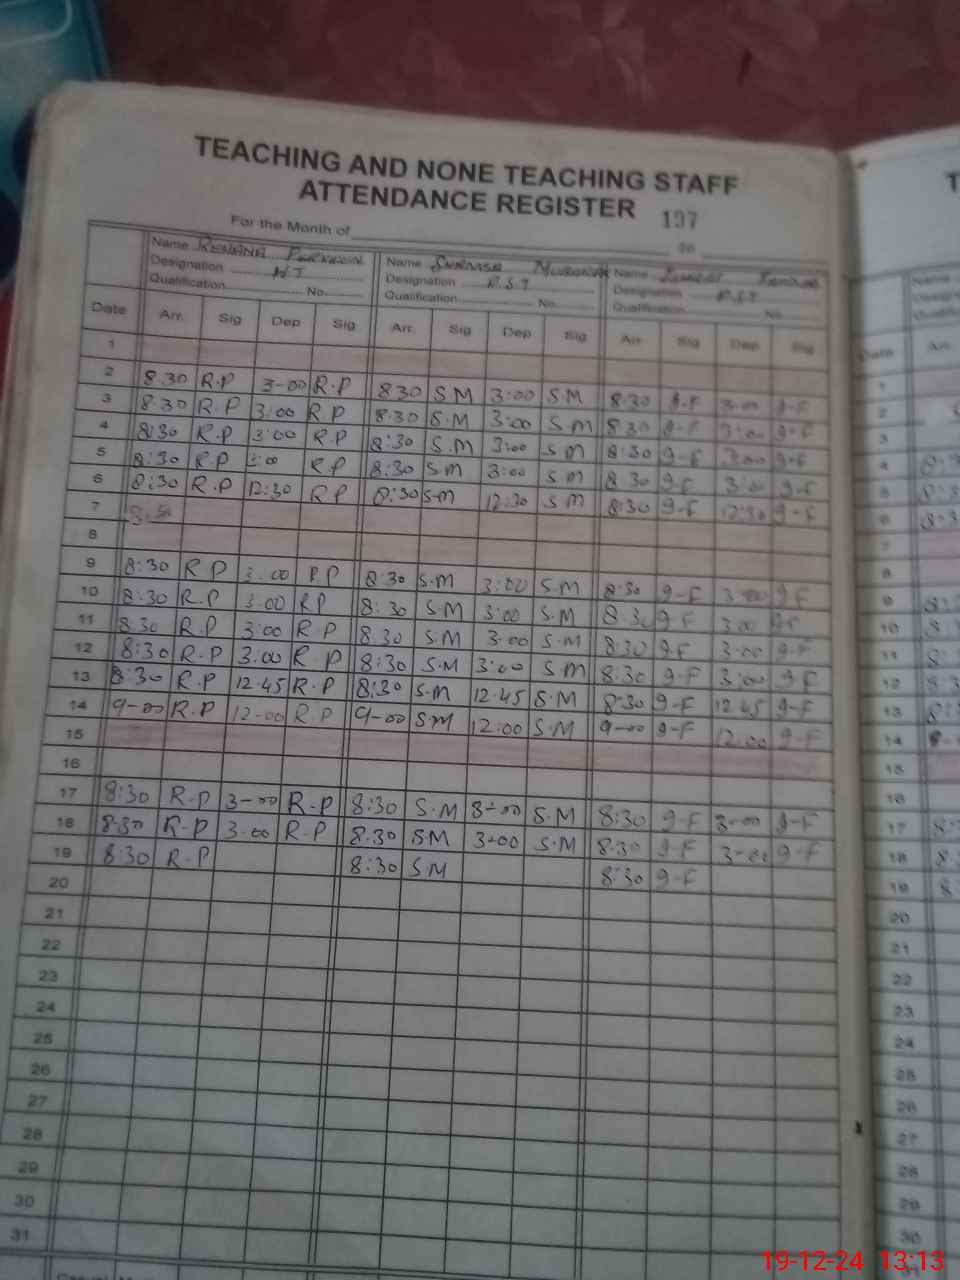 TEACHING AND NONE TEACHING STAFF
ATTENDANCE REGISTER 197
For the Month of 20
Name Name Name
Designation H.T Designation P.S.T Designation P.S.T
Qualification No. Qualification No. Qualification No.
Date Arr. Sig Dep Sig Arr. Sig Dep Sig Arr Sig Dep Sig
1
2 8.30 R.P 3-00 R.P 830 S.M 3:00 S.M 8:30 9-F 3:00 9-F
3 8.30 R.P 3:00 R.P 8:30 S.M 3:00 S.M 830 9-F 3:00 9-F
4 8:30 R.P 3:00 R.P 8:30 S.M 3:00 S M 8:30 9-F 3:00 9-F
5 8:30 R.P 3:00 R.P 8:30 S.M 3:00 S M 8 30 9-F 3:00 9-F
6 8:30 R.P 12:30 R P 8:30 S-M 12:30 S M 8:30 9-F 12:30 9-F
7
8
9 8:30 R P 3.00 R.P 8:30 S.M 3:00 S.M 8:30 9-F 3-00 9-F
10 8:30 R.P 3:00 R.P 8:30 S.M 3:00 S.M 8:30 9-F 3:00 9-F
11 8.30 R.P 3:00 R.P 8.30 S.M 3.00 S.M 8:30 9-F 3:00 9-F
12 8:30 R.P 3:00 R.P 8:30 S.M 3:00 S M 8:30 9-F 3:00 9-F
13 8:30 R.P 12.45 R.P 8:30 S.M 12.45 S.M 8:30 9-F 12.45 9-F
14 9-00 R.P 12-00 R.P 9-00 S.M 12:00 S.M 9-00 9-F 12:00 9-F
15
16
17 8:30 R.P 3-00 R.P 8:30 S.M 3-00 S.M 8:30 9-F 3-00 9-F
18 8:30 R.P 3.00 R.P 8:30 S.M 3-00 S.M 8:30 9-F 3-00 9-F
19 8:30 R.P 8:30 S.M 8:30 9-F
20
21
22
23
24
25
26
27
28
29
30
31
T
Date Arr.
1
2
3
4
5
6
7
8
9
10
11
12
13
14
15
16
17
18
19
20
21
22
23
24
25
26
27
28
29
30
19-12-24 13:13